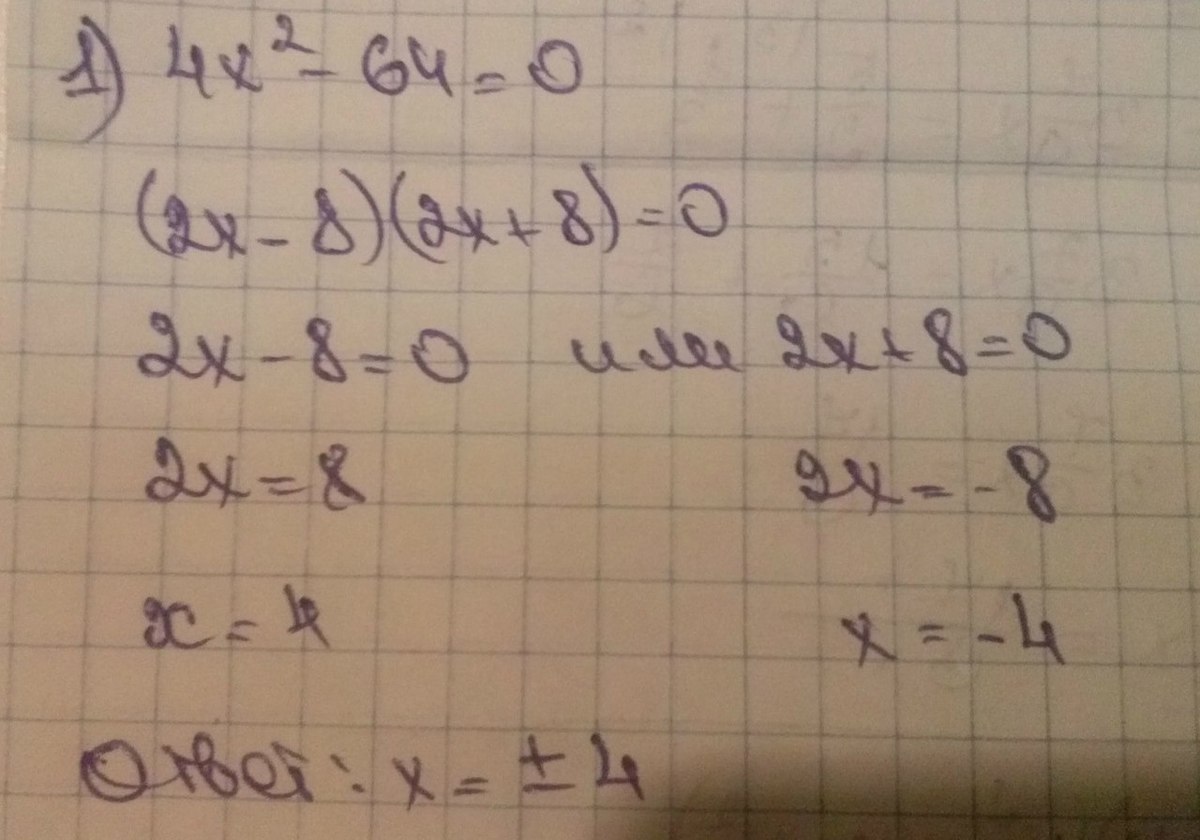 1) 4x² - 64 = 0
(2x - 8)(2x + 8) = 0
2x - 8 = 0 или 2x + 8 = 0
2x = 8 2x = -8
x = 4 x = -4
Ответ: x = ± 4